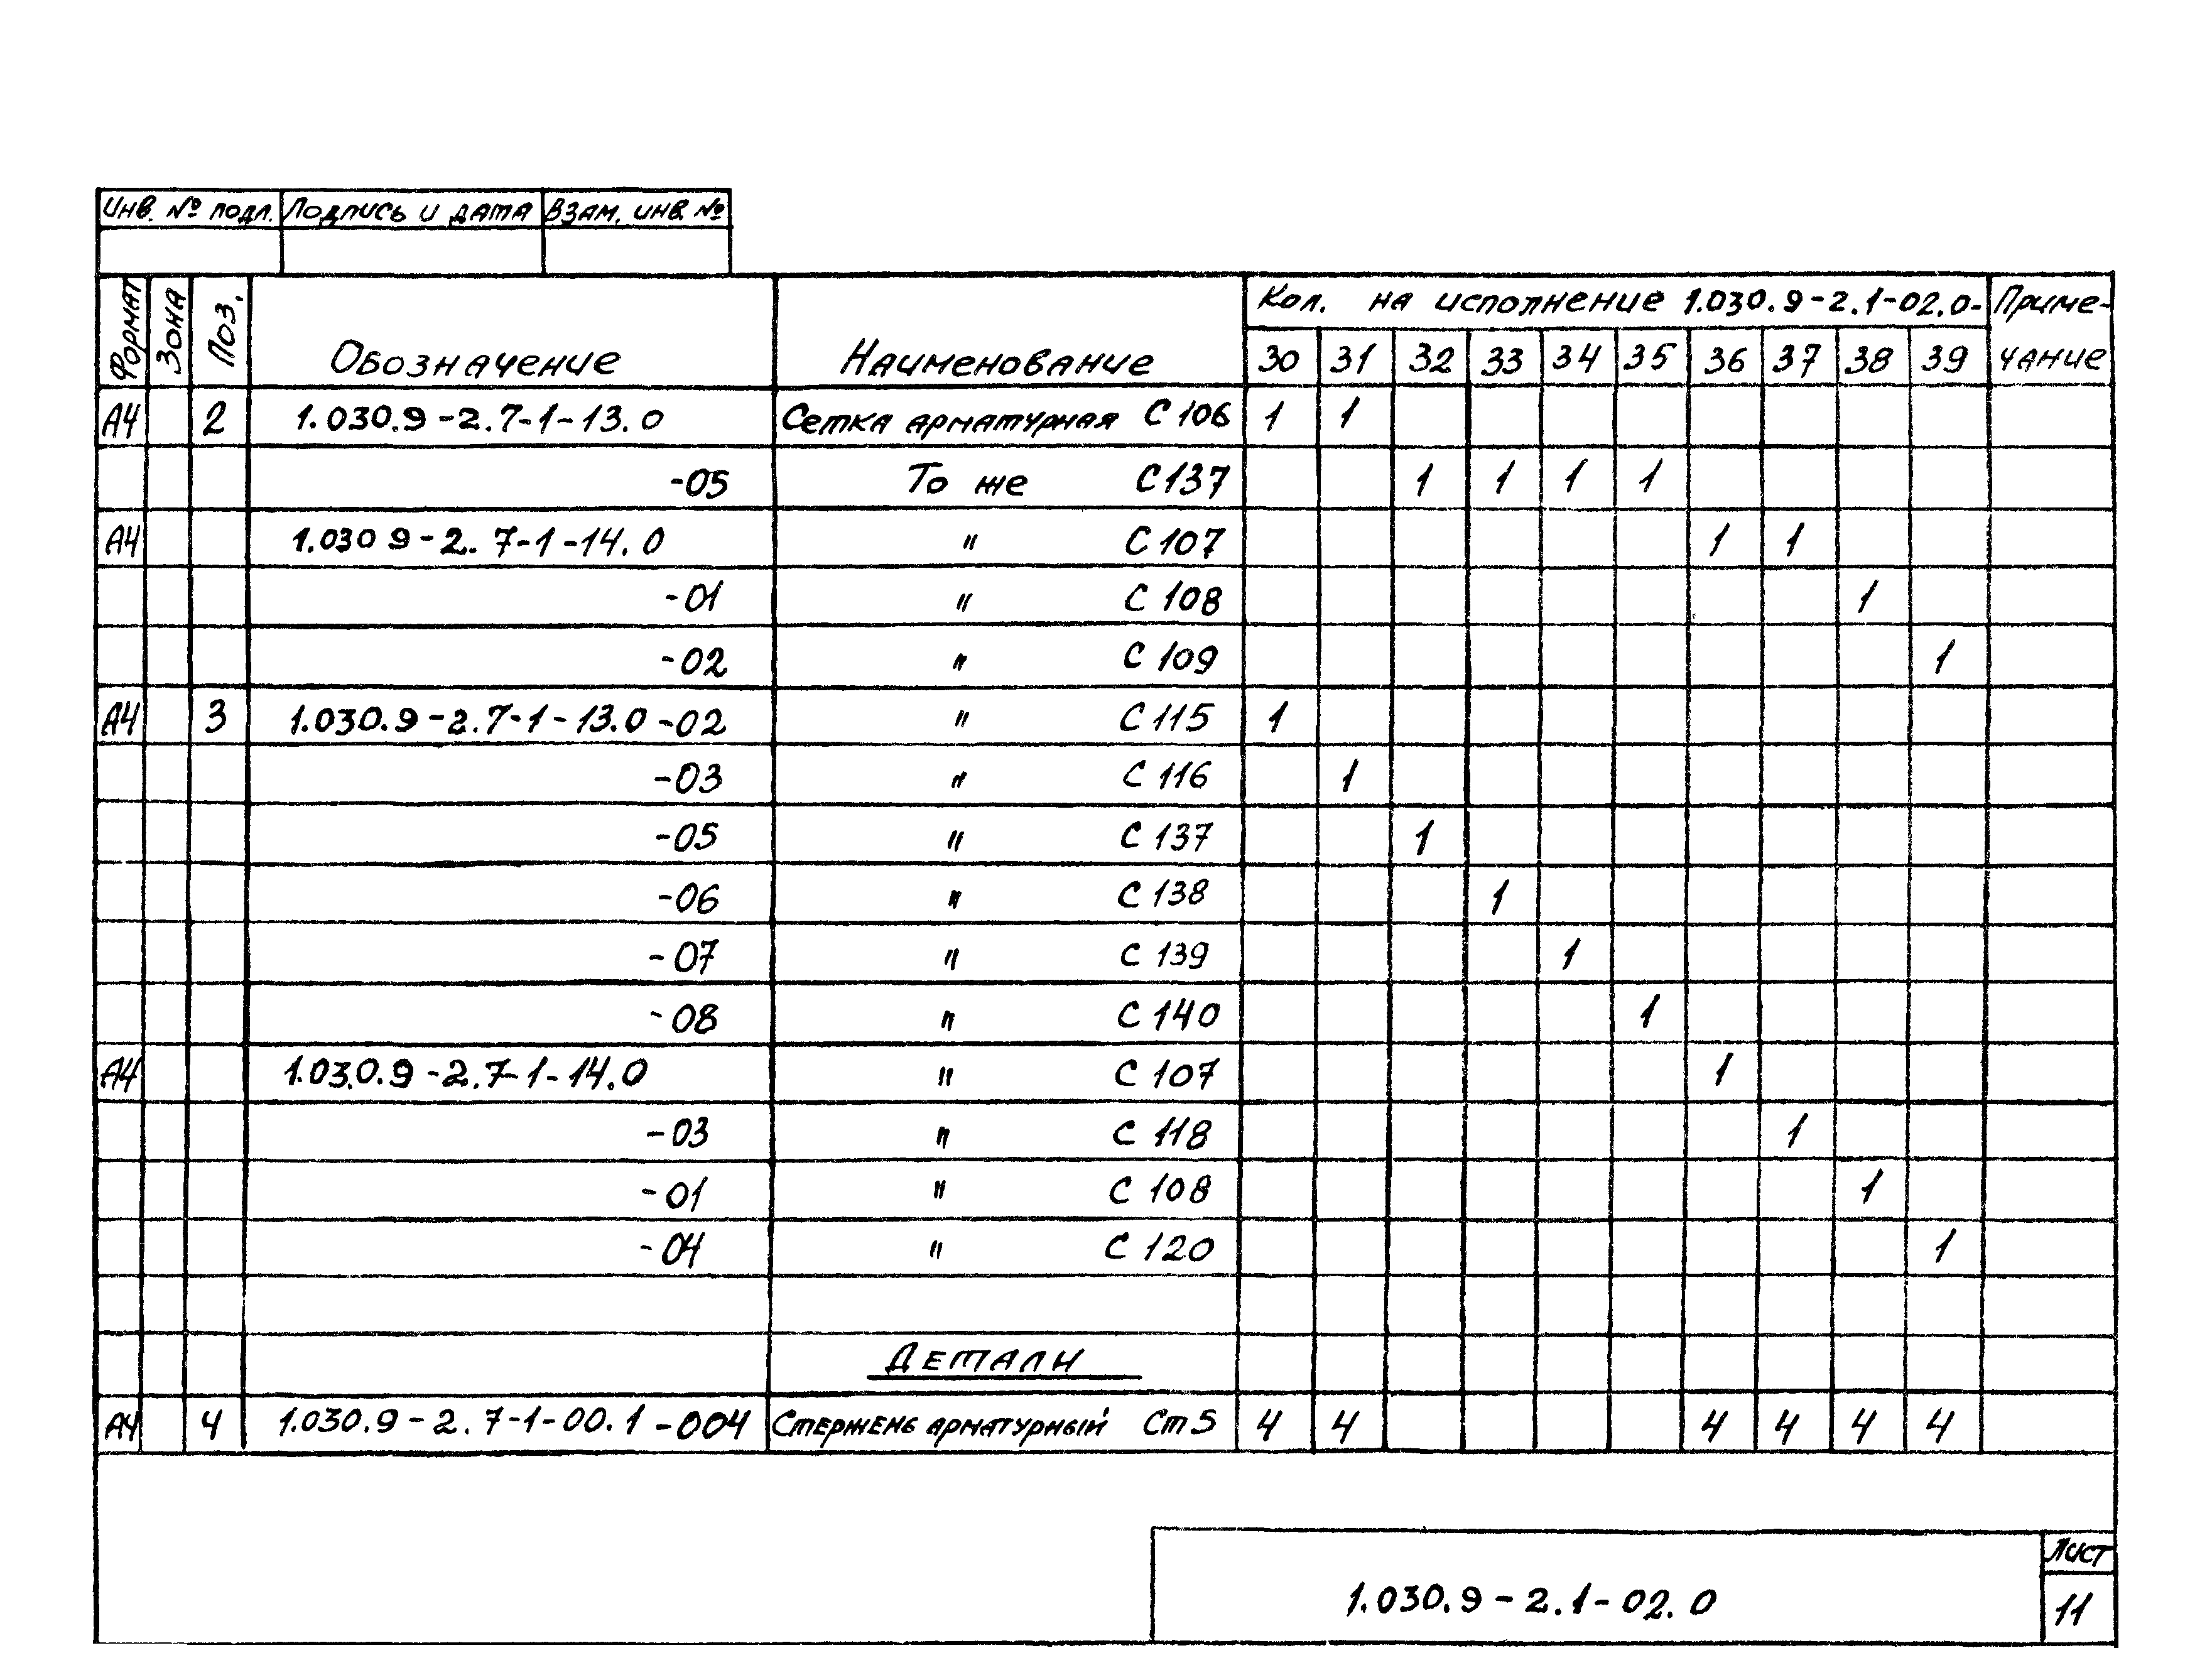 Инв. № подл. Подпись и дата Взам. инв. №
Формат Зона Поз. Обозначение Наименование Кол. на исполнение 1.030.9-2.1-02.0- Приме-
30 31 32 33 34 35 36 37 38 39 чание
А4 2 1.030.9-2.7-1-13.0 Сетка арматурная С 106 1 1
-05 То же С 137 1 1 1 1
А4 1.030 9-2.7-1-14.0 " С 107 1 1
-01 " С 108 1
-02 " С 109 1
А4 3 1.030.9-2.7-1-13.0 -02 " С 115 1
-03 " С 116 1
-05 " С 137 1
-06 " С 138 1
-07 " С 139 1
-08 " С 140 1
А4 1.030.9-2.7-1-14.0 " С 107 1
-03 " С 118 1
-01 " С 108 1
-04 " С 120 1
Детали
А4 4 1.030.9-2.7-1-00.1-004 Стержень арматурный Ст5 4 4 4 4 4 4
Лист
1.030.9-2.1-02.0 11